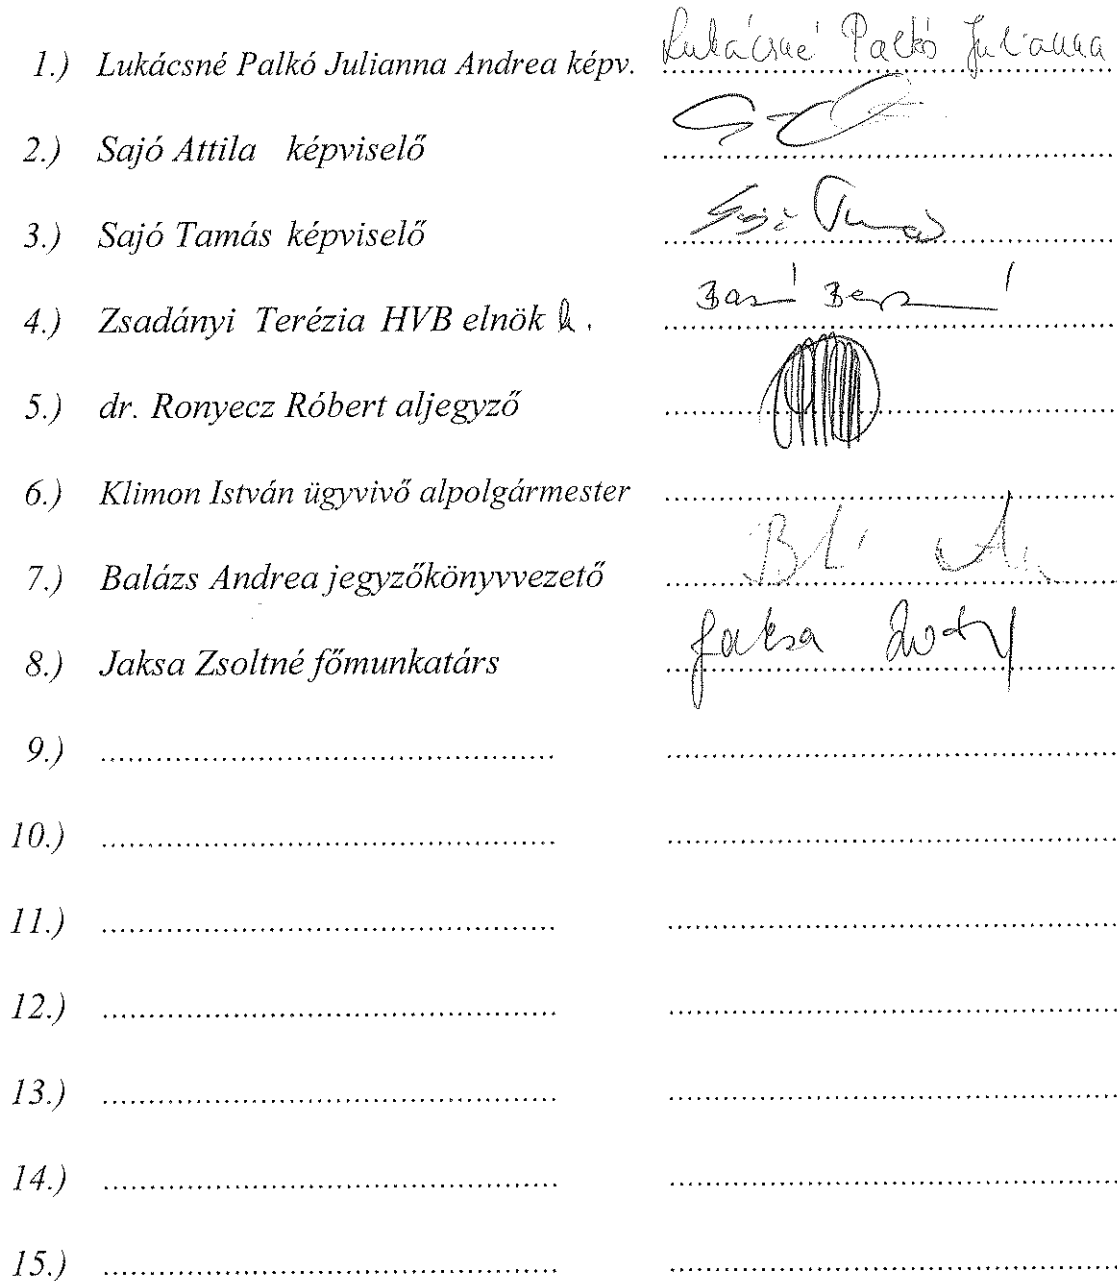 1.) Lukácsné Palkó Julianna Andrea képv. Lukácsné Palkó Julianna
2.) Sajó Attila képviselő
3.) Sajó Tamás képviselő Sajó Tamás
4.) Zsadányi Terézia HVB elnök h.
5.) dr. Ronyecz Róbert aljegyző
6.) Klimon István ügyvivő alpolgármester
7.) Balázs Andrea jegyzőkönyvvezető
8.) Jaksa Zsoltné főmunkatárs Jaksa
9.)
10.)
11.)
12.)
13.)
14.)
15.)